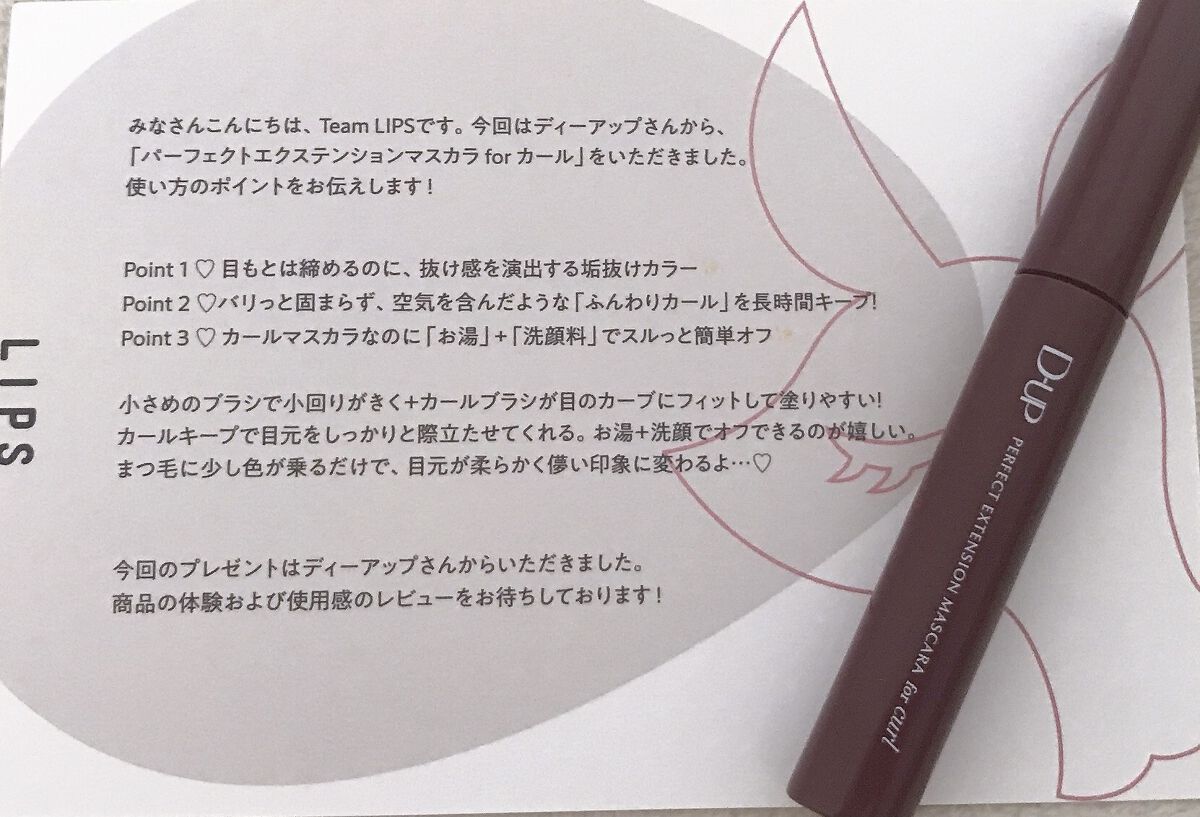 みなさんこんにちは、Team LIPSです。今回はディーアップさんから、
「パーフェクトエクステンションマスカラ for カール」をいただきました。
使い方のポイントをお伝えします!
Point 1 ♡ 目もとは締めるのに、抜け感を演出する垢抜けカラー✨
Point 2 ♡バリっと固まらず、空気を含んだような「ふんわりカール」を長時間キープ!
Point 3 ♡ カールマスカラなのに「お湯」+「洗顔料」でスルっと簡単オフ✨
小さめのブラシで小回りがきく+カールブラシが目のカーブにフィットして塗りやすい!
カールキープで目元をしっかりと際立たせてくれる。お湯+洗顔でオフできるのが嬉しい。
まつ毛に少し色が乗るだけで、目元が柔らかく儚い印象に変わるよ…♡
今回のプレゼントはディーアップさんからいただきました。
商品の体験および使用感のレビューをお待ちしております!
LIPS
D-UP PERFECT EXTENSION MASCARA for curl